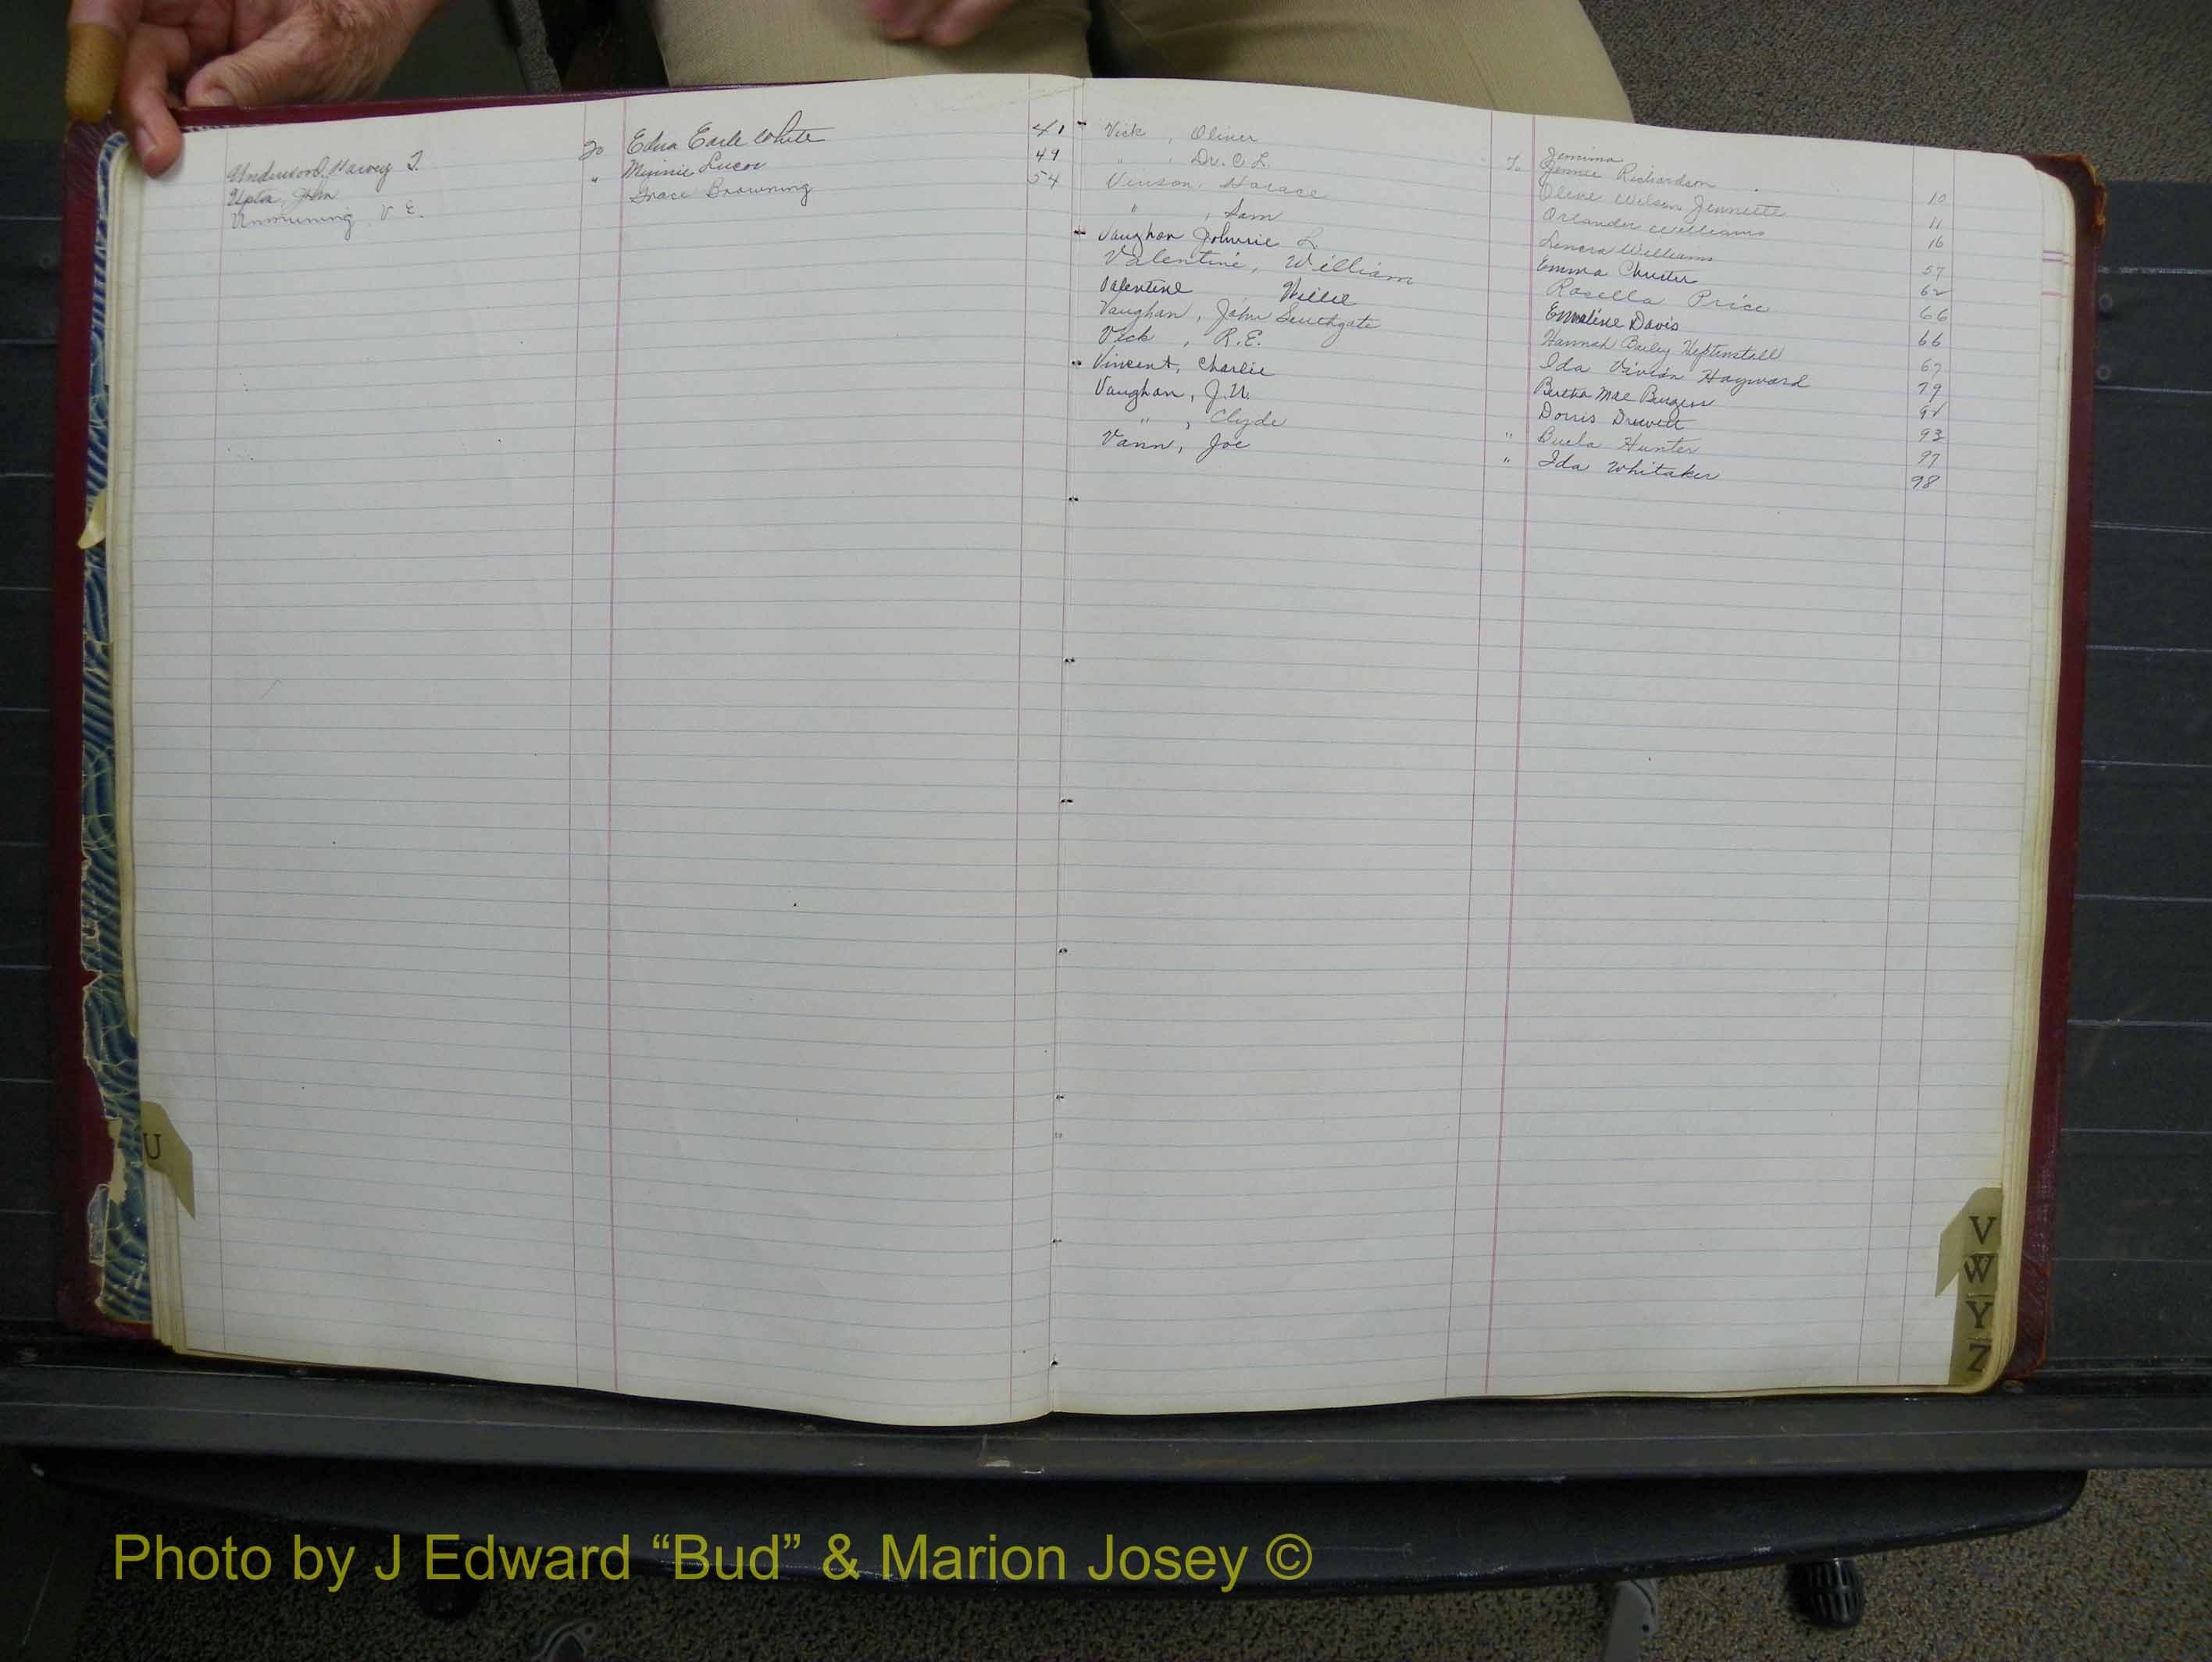 Underwood, Harvey T. To Edna Earle White 41
Upton, John " Minnie Lucas 49
V. E. Grace Browning 54
Vick, Oliver To Jemima Jennie Richardson 10
" , Dr. C. L. Olive Wilson Jennette 11
Vinson, Horace Orlander Williams 16
" , Sam Lenora Williams 57
Vaughan Johnnie L Emma 62
Valentine, William Rosella Price 66
Valentine, Willie Emmaline Davis 66
Vaughan, John Southgate Hannah Bailey Heptinstall 67
Vick, R.E. Ida Vivian Hayward 79
Vincent, Charlie Bertha Mae Burgess 91
Vaughan, J.N. Dorris Drewett 93
" , Clyde " Buela Hunter 97
Vann, Joe " Ida Whitaker 98
U
V
W
Y
Z
Photo by J Edward “Bud” & Marion Josey ©